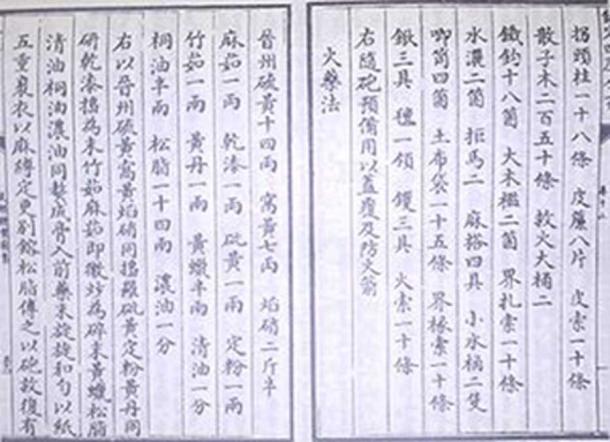 拐頭柱一十八條 皮簾八片 皮索一十條
散子木二百五十條 救火大桶二
鐵鈎十八箇 大木檻二箇 界扎索一十條
水二箇 拒馬二 麻搭四具 小水桶二隻
唧筒四箇 土布袋一十五條 界椽索一十條
鍬三具 氊一領 钁三具 火索一十條
右隨砲預備用以蓋覆及防火箭
火藥法
晉州硫黃十四兩 窩黃七兩 焰硝二斤半
麻茹一兩 乾漆一兩 砒黃一兩 定粉一兩
竹茹一兩 黃丹一兩 黃蠟半兩 清油一分
桐油半兩 松脂一十四兩 濃油一分
右以晉州硫黃窩黃焰硝同擣羅砒黃定粉黃丹同
研乾漆擣為末竹茹麻茹即微炒為碎末黃蠟松脂
清油桐油濃油同熬成膏入前藥末旋旋和勻以紙
五重裹衣以麻縛定更別鎔松脂傅之以砲放復有